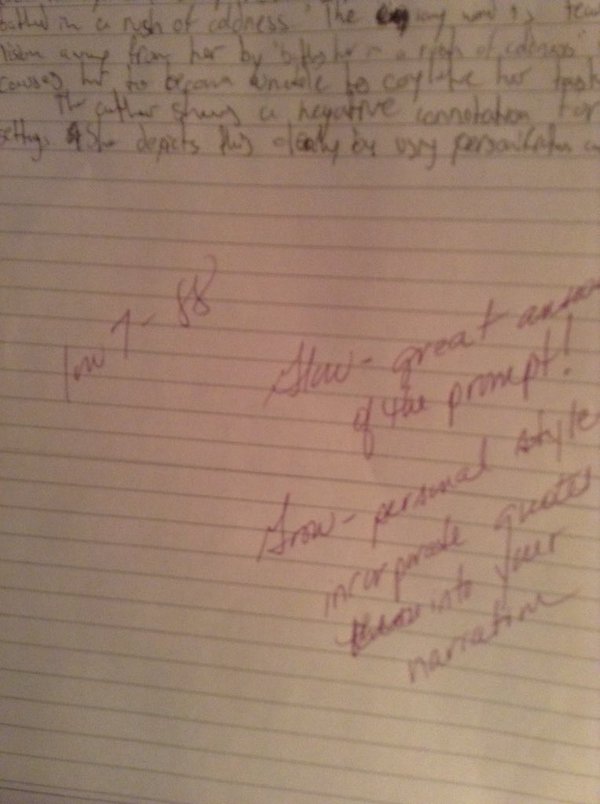 in a rush of coldness" The
away from her by
causes her to become unable to complete her task
The author shows a negative connotation for
setting. She depicts this clearly by using personification
low 7 - 88
Glow - great
of the prompt!
Grow - personal style
incorporate quotes
into your
narration